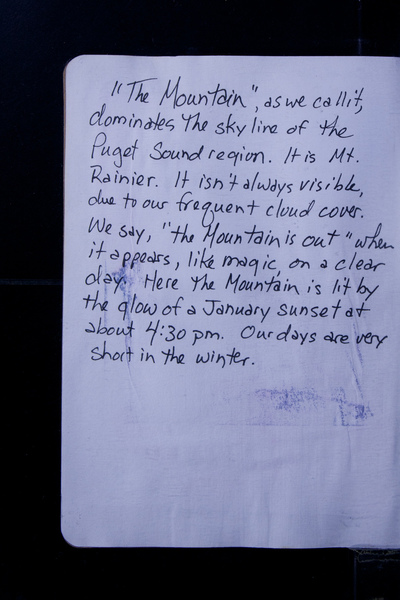 "The Mountain", as we call it,
dominates the skyline of the
Puget Sound region. It is Mt.
Rainier. It isn't always visible,
due to our frequent cloud cover.
We say, "the Mountain is out" when
it appears, like magic, on a clear
day. Here the Mountain is lit by
the glow of a January sunset at
about 4:30 pm. Our days are very
short in the winter.